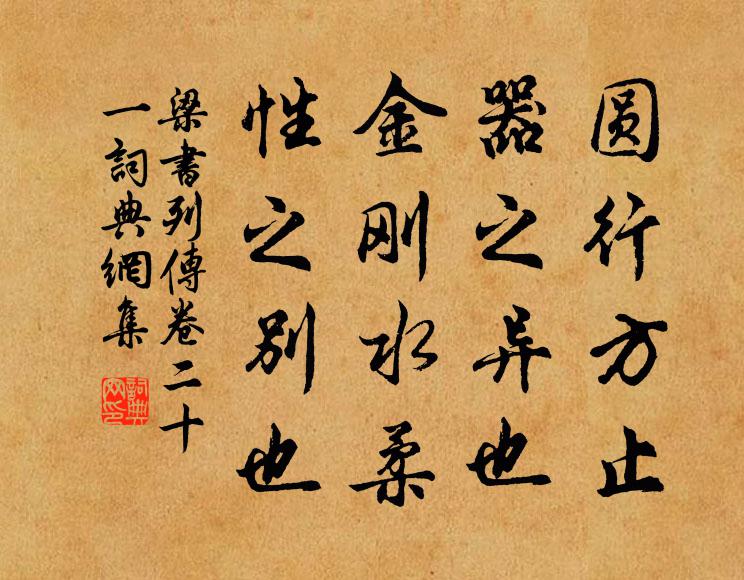 圆行方止
器之异也
金刚水柔
性之别也
梁書列傳卷二十
一詞典網集
詞典網印